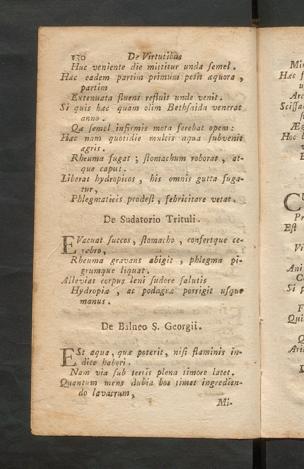 130 De Virtutibus
Huc veniente die mittitur unda semel.
Hac eadem partim primum petit æquora,
partim
Extenuata fluens refluit unde venit.
Si quis hac quam olim Bethsaida venerat
anno.
Quæ semel infirmis mota ferebat opem:
Hac nam quotidie multis aqua subvenit
ægris.
Rheuma fugat; stomachum roborat, at-
que caput.
Liberat hydropicos, his omnis gutta fuga-
tur,
Phlegmaticis prodest, febricitare vetat.
De Sudatorio Trituli.
EVacuat succos, stomacho, confertque ce-
rebro,
Rheuma gravans abigit, phlegma pi-
grumque liquat.
Alleviat corpus leni sudore salutis
Hydropiæ, ac podagræ porrigit usque
manus.
De Balneo S. Georgii.
ESt aqua, quæ poterit, nisi flaminis in-
dice haberi.
Nam via sub terris plena timore latet.
Quantum mens dubia hos timet ingredien-
do lavacrum,
Mi-